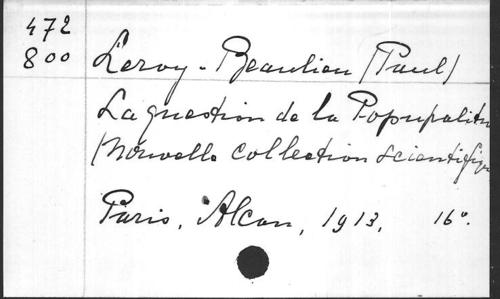 472
800
Leroy-Beaulieu (Paul)
La question de la Popupalitn
(Nouvelle collection scientifiqu
Paris, Alcan, 1913, 16°.